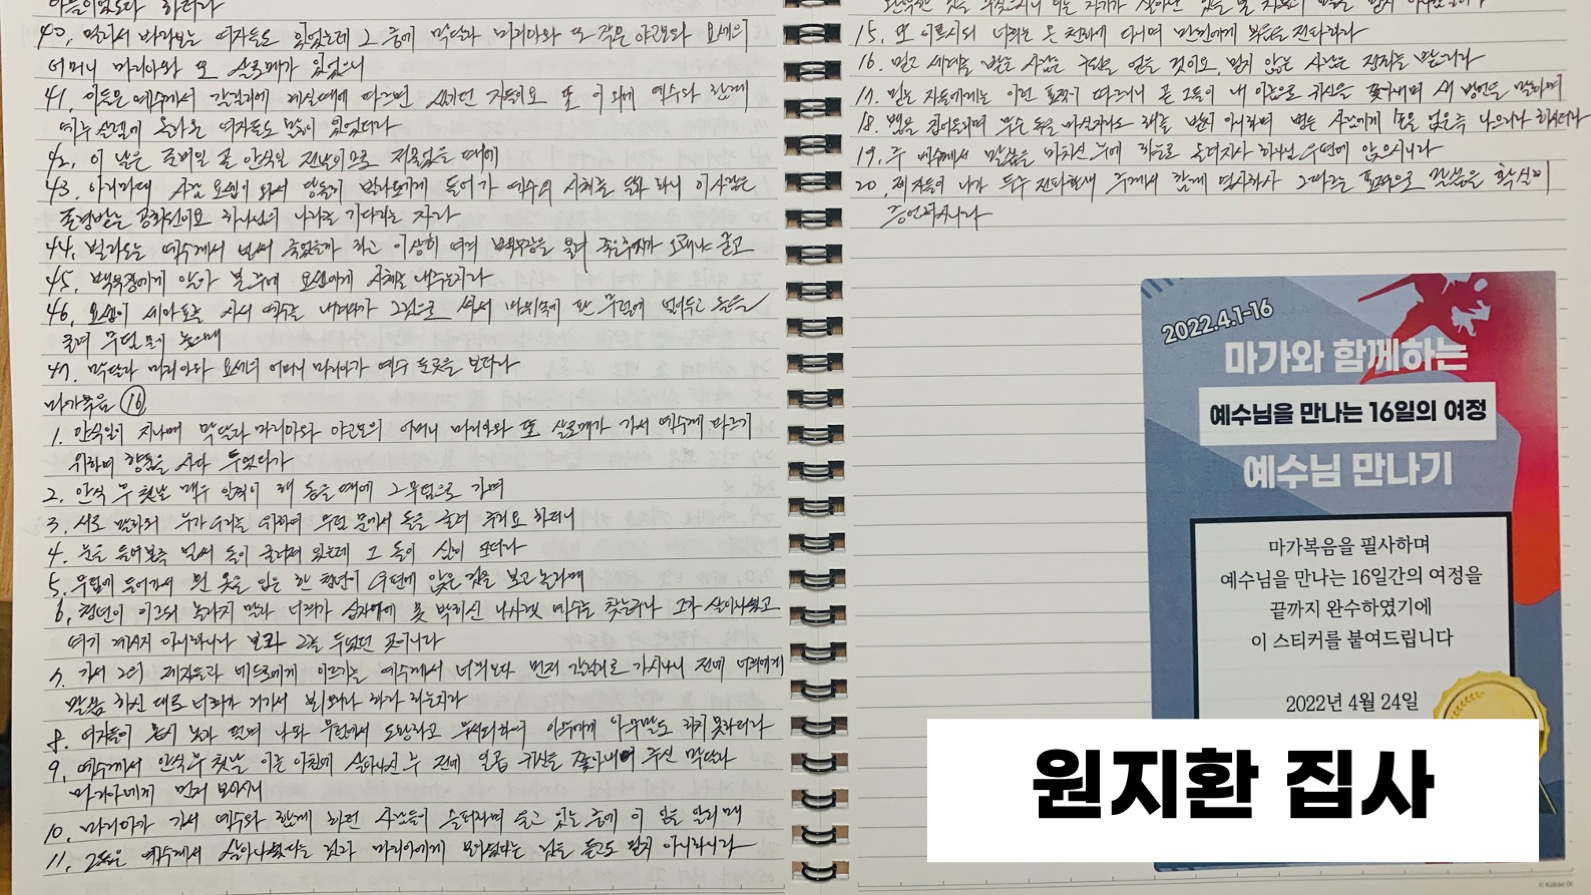 40. 멀리서 바라보는 여자들도 있었는데 그 중에 막달라 마리아와 또 작은 야고보와 요세의
어머니 마리아와 또 살로메가 있었으니
41. 이들은 예수께서 갈릴리에 계실 때에 따르며 섬기던 자들이요 또 이 외에 예수와 함께
예루살렘에 올라온 여자들도 많이 있었더라
42. 이 날은 준비일 곧 안식일 전날이므로 저물었을 때에
43. 아리마대 사람 요셉이 와서 당돌히 빌라도에게 들어가 예수의 시체를 달라 하니 이 사람은
존경받는 공회원이요 하나님의 나라를 기다리는 자라
44. 빌라도는 예수께서 벌써 죽었을까 하고 이상히 여겨 백부장을 불러 죽은지가 오래냐 묻고
45. 백부장에게 알아 본 후에 요셉에게 시체를 내주는지라
46. 요셉이 세마포를 사서 예수를 내려다가 그것으로 싸서 바위 속에 판 무덤에 넣어두고 돌을
굴려 무덤 문에 놓으매
47. 막달라 마리아와 요세의 어머니 마리아가 예수 둔 곳을 보더라
마가복음 16
1. 안식일이 지나매 막달라 마리아와 야고보의 어머니 마리아와 또 살로메가 가서 예수께 바르기
위하여 향품을 사다 두었다가
2. 안식 후 첫날 매우 일찍이 해 돋을 때에 그 무덤으로 가며
3. 서로 말하되 누가 우리를 위하여 무덤 문에서 돌을 굴려 주리요 하더니
4. 눈을 들어본즉 벌써 돌이 굴려져 있는데 그 돌이 심히 크더라
5. 무덤에 들어가서 흰 옷을 입은 한 청년이 우편에 앉은 것을 보고 놀라매
6. 청년이 이르되 놀라지 말라 너희가 십자가에 못 박히신 나사렛 예수를 찾는구나 그가 살아나셨고
여기 계시지 아니하니라 보라 그를 두었던 곳이니라
7. 가서 그의 제자들과 베드로에게 이르기는 예수께서 너희보다 먼저 갈릴리로 가시나니 전에 너희에게
말씀 하신 대로 너희가 거기서 뵈오리라 하라 하는지라
8. 여자들이 몹시 놀라 떨며 나와 무덤에서 도망하고 무서워하여 아무에게 아무말도 하지 못하더라
9. 예수께서 안식 후 첫날 이른 아침에 살아나신 후 전에 일곱 귀신을 쫓아내어 주신 막달라
마리아에게 먼저 보이시니
10. 마리아가 가서 예수와 함께 하던 사람들이 슬퍼하며 울고 있는 중에 이 일을 알리매
11. 그들은 예수께서 살아나셨다는 것과 마리아에게 보이셨다는 것을 듣고도 믿지 아니하니라
15. 또 이르시되 너희는 온 천하에 다니며 만민에게 복음을 전파하라
16. 믿고 세례를 받는 사람은 구원을 얻을 것이요 믿지 않는 사람은 정죄를 받으리라
17. 믿는 자들에게는 이런 표적이 따르리니 곧 그들이 내 이름으로 귀신을 쫓아내며 새 방언을 말하며
18. 뱀을 집어올리며 무슨 독을 마실지라도 해를 받지 아니하며 병든 사람에게 손을 얹은즉 나으리라 하시더라
19. 주 예수께서 말씀을 마치신 후에 하늘로 올려지사 하나님 우편에 앉으시니라
20. 제자들이 나가 두루 전파할새 주께서 함께 역사하사 그 따르는 표적으로 말씀을 확실히
증언하시니라
2022.4.1-16
마가와 함께하는
예수님을 만나는 16일의 여정
예수님 만나기
마가복음을 필사하며
예수님을 만나는 16일간의 여정을
끝까지 완수하였기에
이 스티커를 붙여드립니다
2022년 4월 24일
원지환 집사